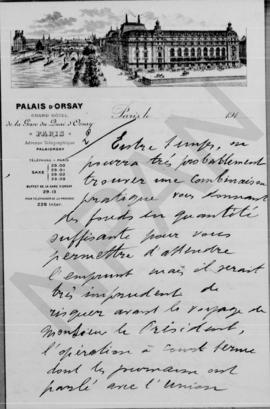 PALAIS D'ORSAY
GRAND HÔTEL
de la Gare du Quai d'Orsay
PARIS
Adresse Télégraphique
PALAIORSAY
TÉLÉPHONE : PARIS
SAXE
BUFFET DE LA GARE D'ORSAY
Paris le 191
Entre temps, on
pourra très probablement
trouver une combinaison
pratique vous donnant
des fonds en quantité
suffisante pour vous
permettre d'attendre
l'emprunt mais il serait
très imprudent de
risquer avant le voyage de
Monsieur le Président,
l'opération à court terme
dont les journaux ont
parlé avec l'Union